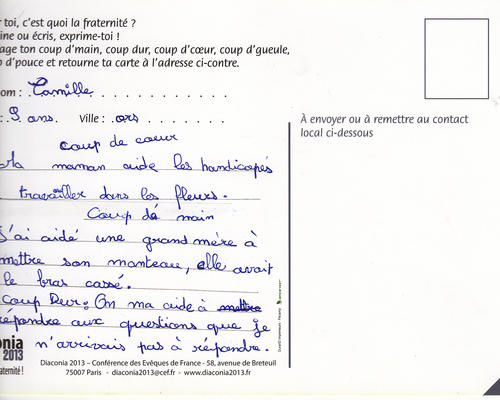 toi, c'est quoi la fraternité ?
ine ou écris, exprime-toi !
age ton coup d'main, coup dur, coup d'cœur, coup d'gueule,
d'pouce et retourne ta carte à l'adresse ci-contre.
om : Camille
: 9 ans. Ville : ors
coup de coeur
Ma maman aide les handicapés
travailler dans les fleurs.
Coup de main
J'ai aidé une grand mère à
mettre son manteau, elle avait
le bras cassé.
Coup Dur : On ma aidé à mettre
répondre aux questions que je
n'arrivais pas à répondre.
onia
2013
raternité !
Diaconia 2013 – Conférence des Evêques de France - 58, avenue de Breteuil
75007 Paris - diaconia2013@cef.fr - www.diaconia2013.fr
À envoyer ou à remettre au contact
local ci-dessous